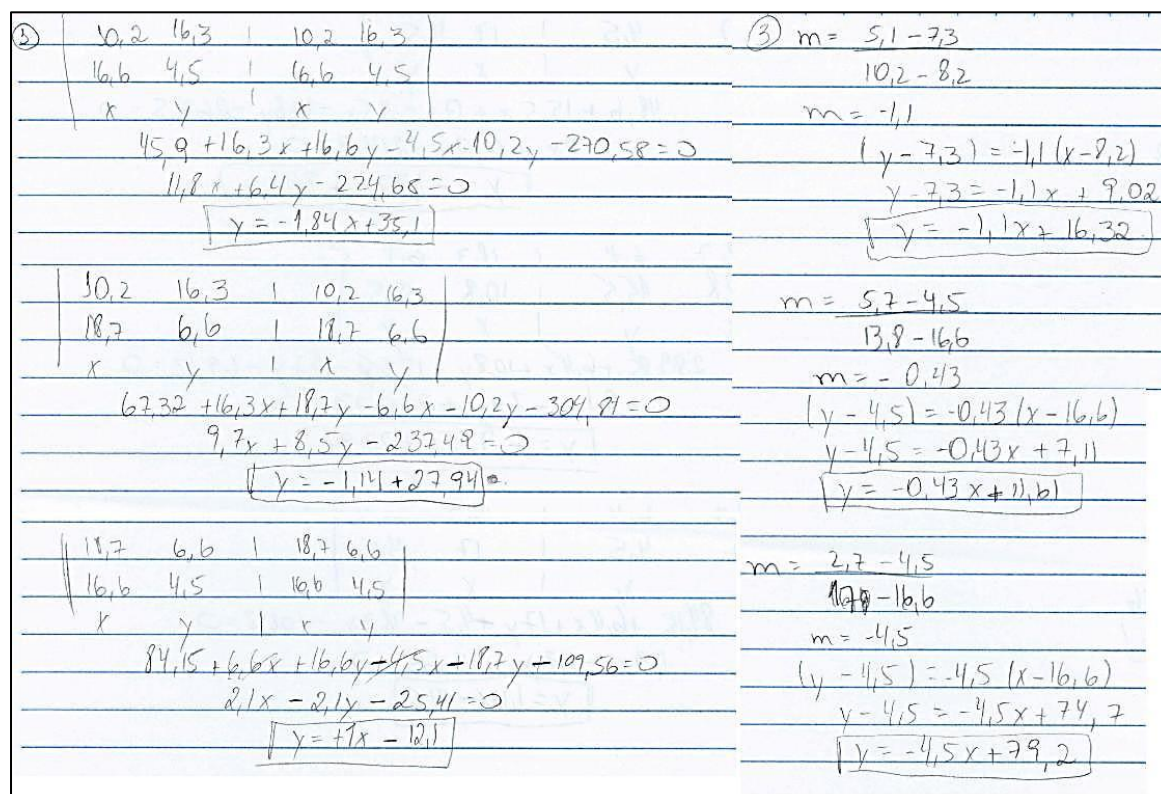 ③ | 10,2 16,3 1 10,2 16,3 |
| 16,6 4,5 1 16,6 4,5 |
x y 1 x y
45,9 + 16,3x + 16,6y - 4,5x - 10,2y - 270,58 = 0
11,8x + 6,4y - 224,68 = 0
y = -1,84x + 35,1
| 10,2 16,3 1 10,2 16,3 |
| 18,7 6,6 1 18,7 6,6 |
x y 1 x y
67,32 + 16,3x + 18,7y - 6,6x - 10,2y - 304,81 = 0
9,7x + 8,5y - 237,49 = 0
y = -1,14 + 27,94
| 18,7 6,6 1 18,7 6,6 |
| 16,6 4,5 1 16,6 4,5 |
x y 1 x y
84,15 + 6,6x + 16,6y - 4,5x - 18,7y - 109,56 = 0
2,1x - 2,1y - 25,41 = 0
y = +1x - 12,1
③ m = 5,1 - 7,3
10,2 - 8,2
m = -1,1
(y - 7,3) = -1,1(x - 8,2)
y - 7,3 = -1,1x + 9,02
y = -1,1x + 16,32
m = 5,7 - 4,5
13,8 - 16,6
m = - 0,43
(y - 4,5) = -0,43(x - 16,6)
y - 4,5 = -0,43x + 7,11
y = -0,43x + 11,61
m = 2,7 - 4,5
- 16,6
m = -4,5
(y - 4,5) = -4,5 (x - 16,6)
y - 4,5 = -4,5x + 74,7
y = -4,5x + 79,2